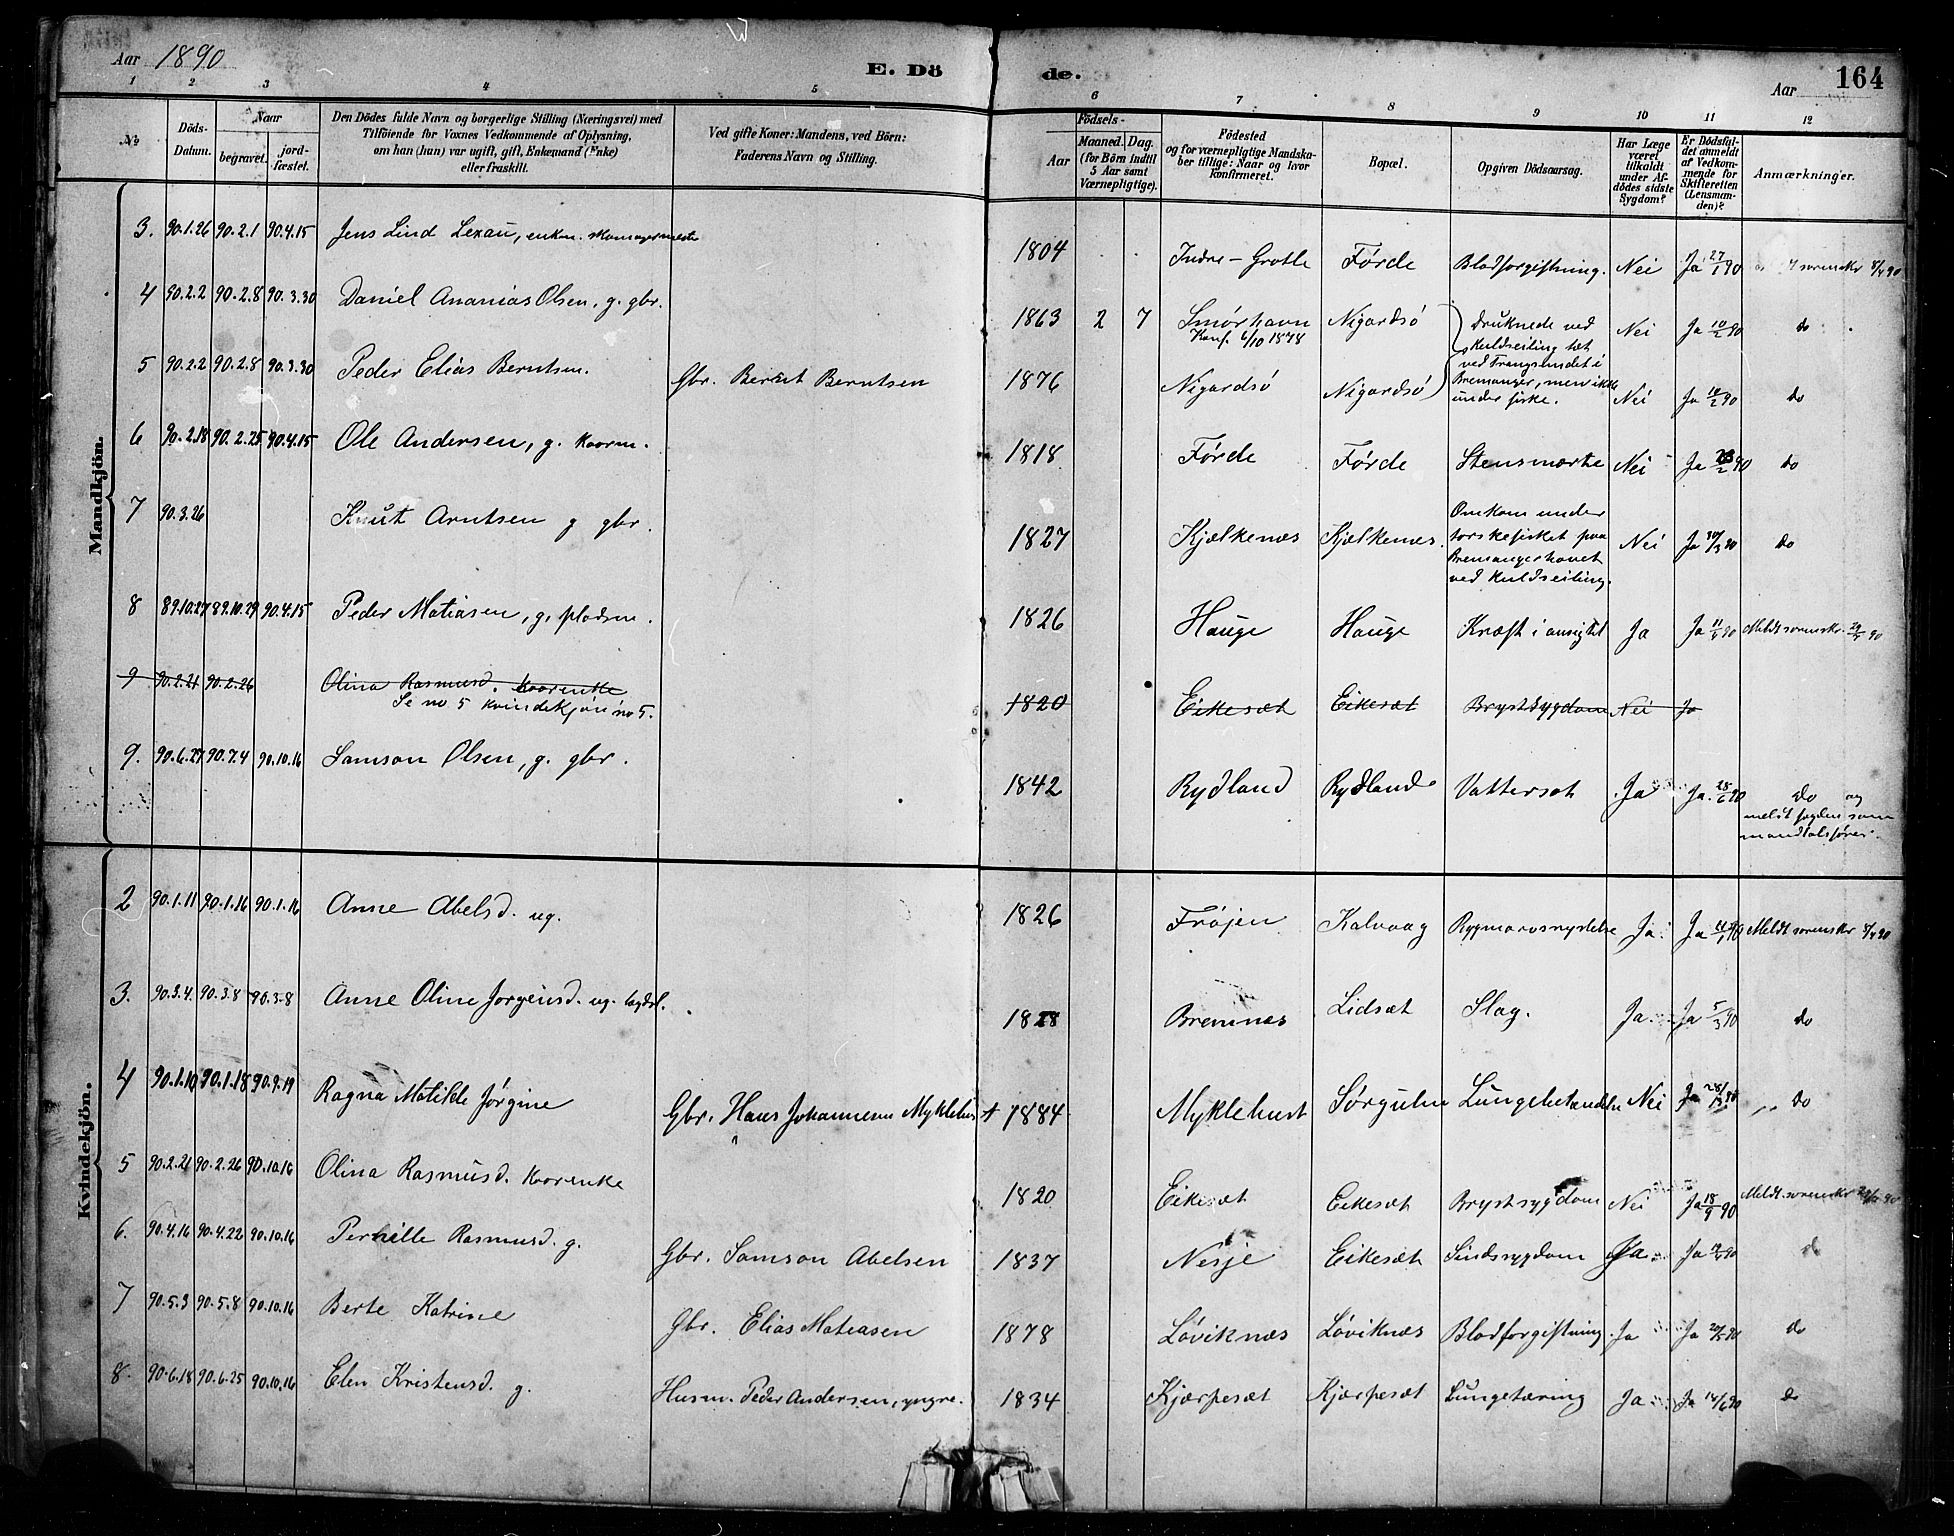 Aar 1890
E. Döde.
Aar
164
1 2 3 4 5 6 7 8 9 10 11 12
No
Döds-Datum.
Naar
begravet.
jord-fæstet.
Den Dödes fulde Navn og borgerlige Stilling (Næringsvei) med
Tilföiende for Voxnes Vedkommende af Oplysning,
om han (hun) var ugift, gift, Enkemand (Enke)
eller fraskilt.
Ved gifte Koner: Mandens, ved Börn:
Faderens Navn og Stilling.
Födsels-
Aar
Maaned. Dag.
(for Börn indtil
5 Aar samt
Værnepligtige).
Födested
og for værnepligtige Mandska-
ber tillige: Naar og hvor
konfirmeret.
Bopæl.
Opgiven Dödsaarsag.
Har Læge
været
tilkaldt
under Af-
dödes sidste
Sygdom?
Er Dödsfal-
det anmeldt
af Vedkom-
mende for
Skifteretten
(Lensman-
den)?
Anmærkninger.
Mandkjön.
3. 90.1.26 90.2.1 90.4.15 Jens Lind Lexau, enkem. 1804 Indre-Grotle Førde Blodforgiftning. Nei Ja 27/1 90 sorenskr 8/4 90
4 90.2.2 90.2.8 90.3.30 Daniel Ananias Olsen, g. gbr. 1863 2 7 Smørhavn Nigardsö Nei Ja 10/2 90 do
Konf. 6/10 1878
Druknede ved
Kuldseiling tæt
ved Frangsundet i
Bremanger, men ikke
under fiske.
5 90.2.2 90.2.8 90.3.30 Peder Elias Berntsen. Gbr. Bernt Berntsen 1876 Nigardsö Nigardsö Nei Ja 10/2 90 do
6 90.2.18 90.2.25 90.4.15 Ole Andersen, g. kaarm. 1818 Førde Førde Stensmerte Nei Ja 90 do
7 90.3.26 Knut Arntsen g gbr. 1827 Kjælkenæs Kjælkenæs. Nei Ja 30/3 90 do
Omkom under
torskefisket paa
Bremangerhavet
ved kuldseiling.
8 89.10.27 89.10.29 90.4.15 Peder Matiasen, g. pladsm. 1826 Hauge Hauge Kræft i ansigtet Ja Ja 90 Meldt sorenskr. 90
9 90.2.21 90.2.26 Olina Rasmusd. kaarenke 1820 Eikesæt Eikesæt Brystsygdom Nei Ja
Se no 5 kvindekjön no 5.
9. 90.6.27 90.7.4 90.10.16 Samson Olsen, g. gbr. 1842 Rydland Rydland Vattersot Ja Ja 28/6 90 do og
meldt fogden som
mandtalsfører.
Kvindekjön.
2 90.1.11 90.1.16 90.1.16 Anne Abelsd. ug. 1826 Frøjen Kalvaag Rygmarvsnydelse Ja Ja 90 Meldt sorenskr 8/4 90
3. 90.3.4. 90.3.8 90.3.8 Anne Oline Jørgensd. ug. 1828 Bremnæs Lidsæt Slag. Ja. Ja 5/3 90 do
4 90.1.10 90.1.18 90.9.19 Ragna Matilde Jørgine Gbr. Hans Johannesen Myklebust 1884 Myklebust Sørgulen Lungebetændelse Nei Ja „ do
5 90.2.21 90.2.26 90.10.16 Olina Rasmusd. kaarenke 1820 Eikesæt Eikesæt Brystsygdom Nei Ja 18/9 90 Meldt sorenskr 90
6. 90.4.16 90.4.22 90.10.16 Pernille Rasmusd. g. Gbr. Samson Abelsen 1837 Nesje Eikesæt Sindssygdom Ja Ja 90 do
7 90.5.3 90.5.8 90.10.16 Berte Katrine Gbr. Elias Matiasen 1878 Løviknæs Løviknæs Blodforgiftning. Ja Ja 20/5 90 do
8. 90.6.18 90.6.25 90.10.16 Elen Kristensd. g. Husm. Peder Andersen, yngre. 1834 Kjærpesæt Kjærpesæt Lungetæring Ja Ja 14/6 90 do